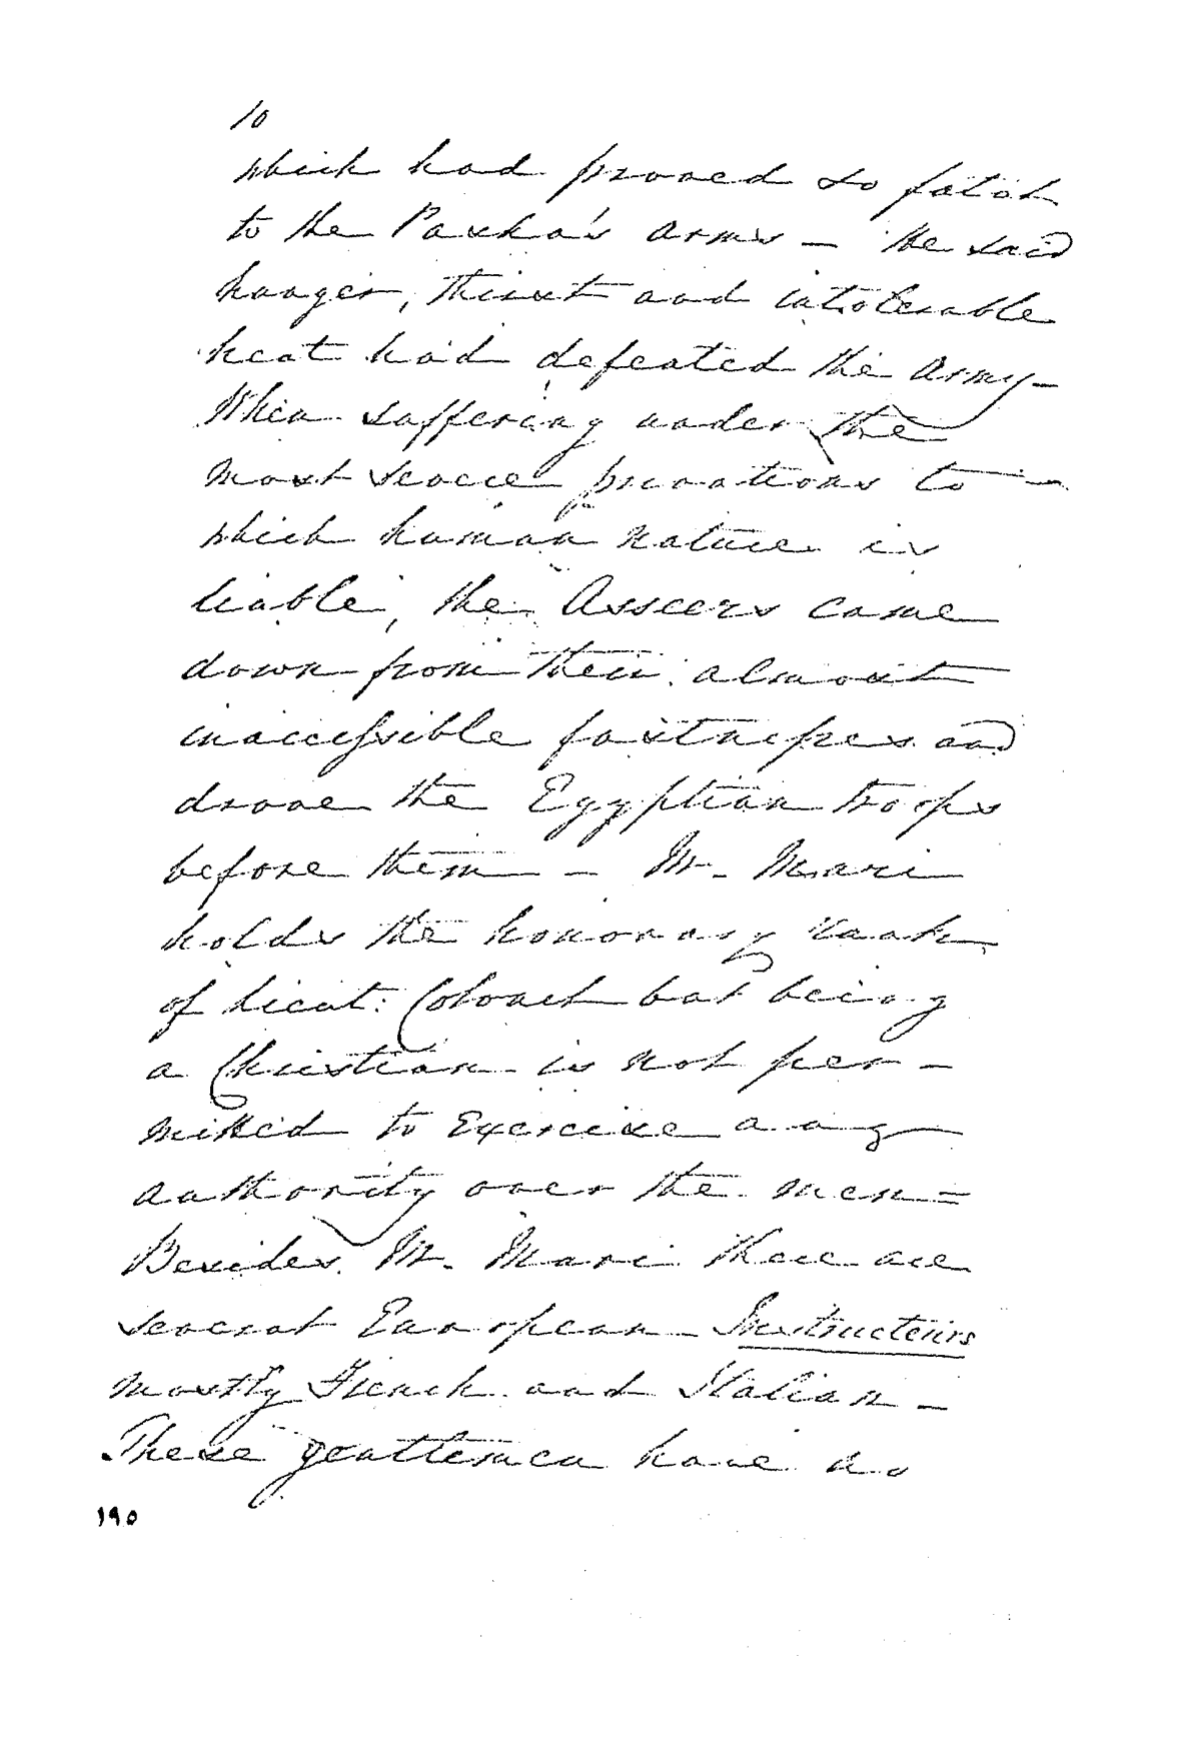 10
which had proved so fatal
to the Pasha's arms — He said
hunger, thirst and intolerable
heat had defeated the army —
When suffering under the
most severe privations to
which human nature is
liable, the Asseers came
down from their almost
inaccessible fastnesses and
drove the Egyptian troops
before them — Mr. Mari
holds the honorary rank
of Lieut: Colonel but being
a Christian is not per-
mitted to exercise any
authority over the men =
Besides Mr. Mari there are
several European Instructeurs
mostly French and Italian —
These gentlemen have no
١٩٥